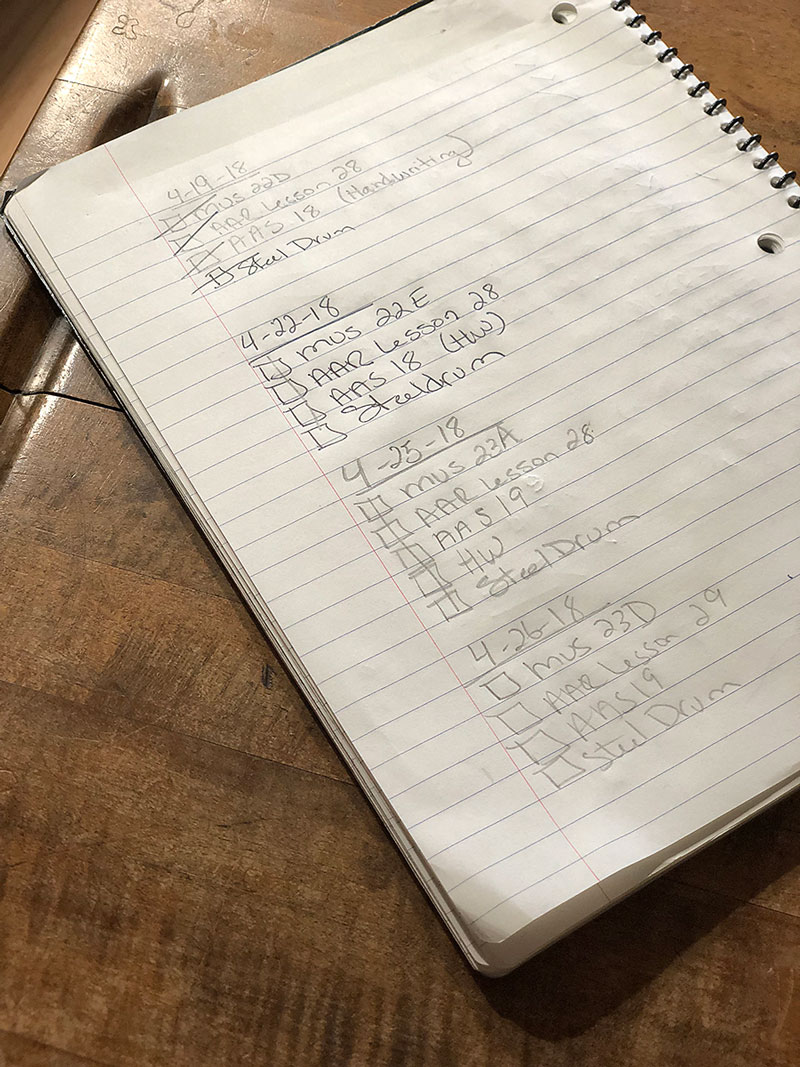 4-19-18
MUS 22D
AAR Lesson 28
AAS 18 (Handwriting)
Steel Drum
4-22-18
MUS 22E
AAR Lesson 28
AAS 18 (HW)
Steeldrum
4-25-18
MUS 23A
AAR Lesson 28
AAS 19
HW
Steel Drum
4-26-18
MUS 23D
AAR Lesson 29
AAS 19
Steel Drum